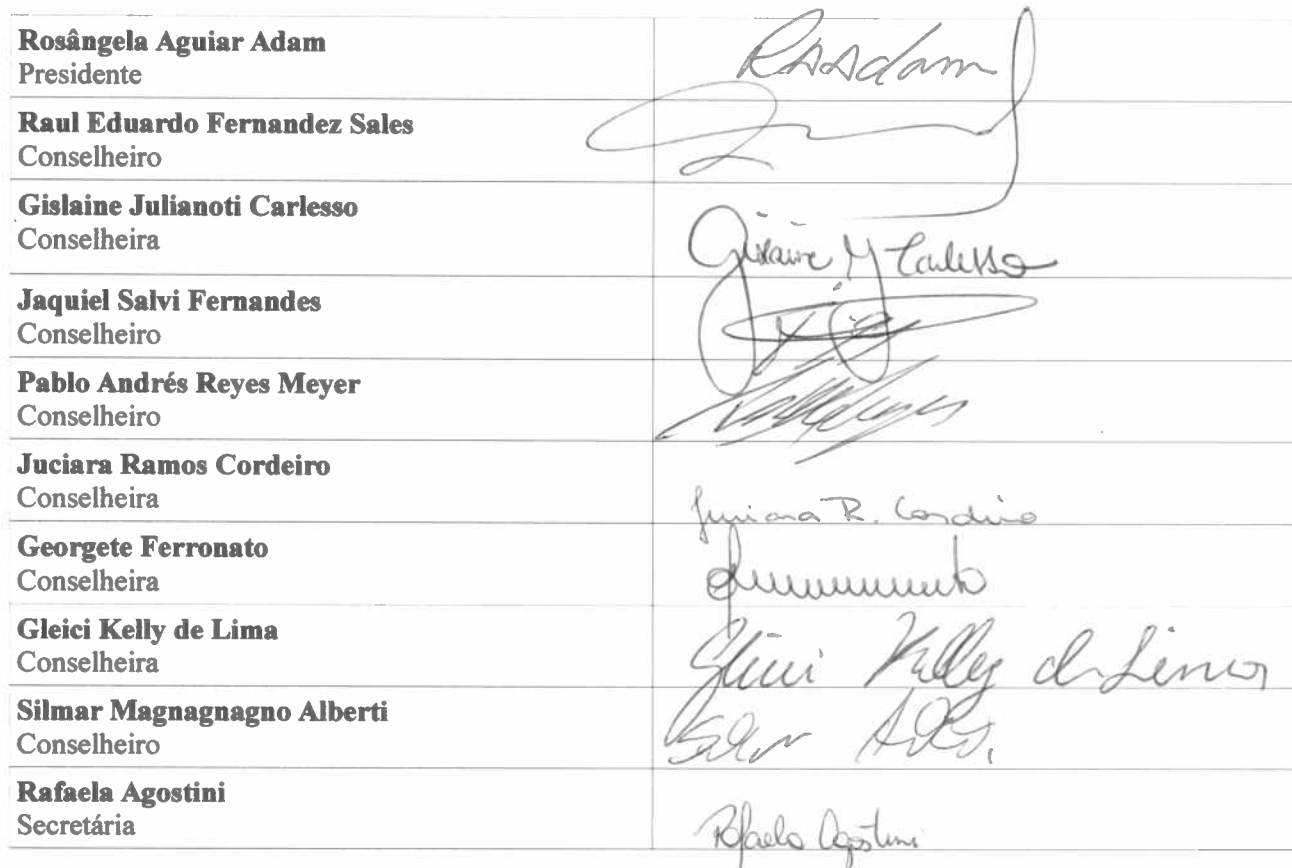 Rosângela Aguiar Adam
Presidente
RAAdam
Raul Eduardo Fernandez Sales
Conselheiro
Gislaine Julianoti Carlesso
Conselheira
Gislaine J Carlesso
Jaquiel Salvi Fernandes
Conselheiro
Pablo Andrés Reyes Meyer
Conselheiro
Juciara Ramos Cordeiro
Conselheira
Juciara R. Cordeiro
Georgete Ferronato
Conselheira
Gleici Kelly de Lima
Conselheira
Gleici Kelly de Lima
Silmar Magnagnagno Alberti
Conselheiro
Rafaela Agostini
Secretária
Rafaela Agostini